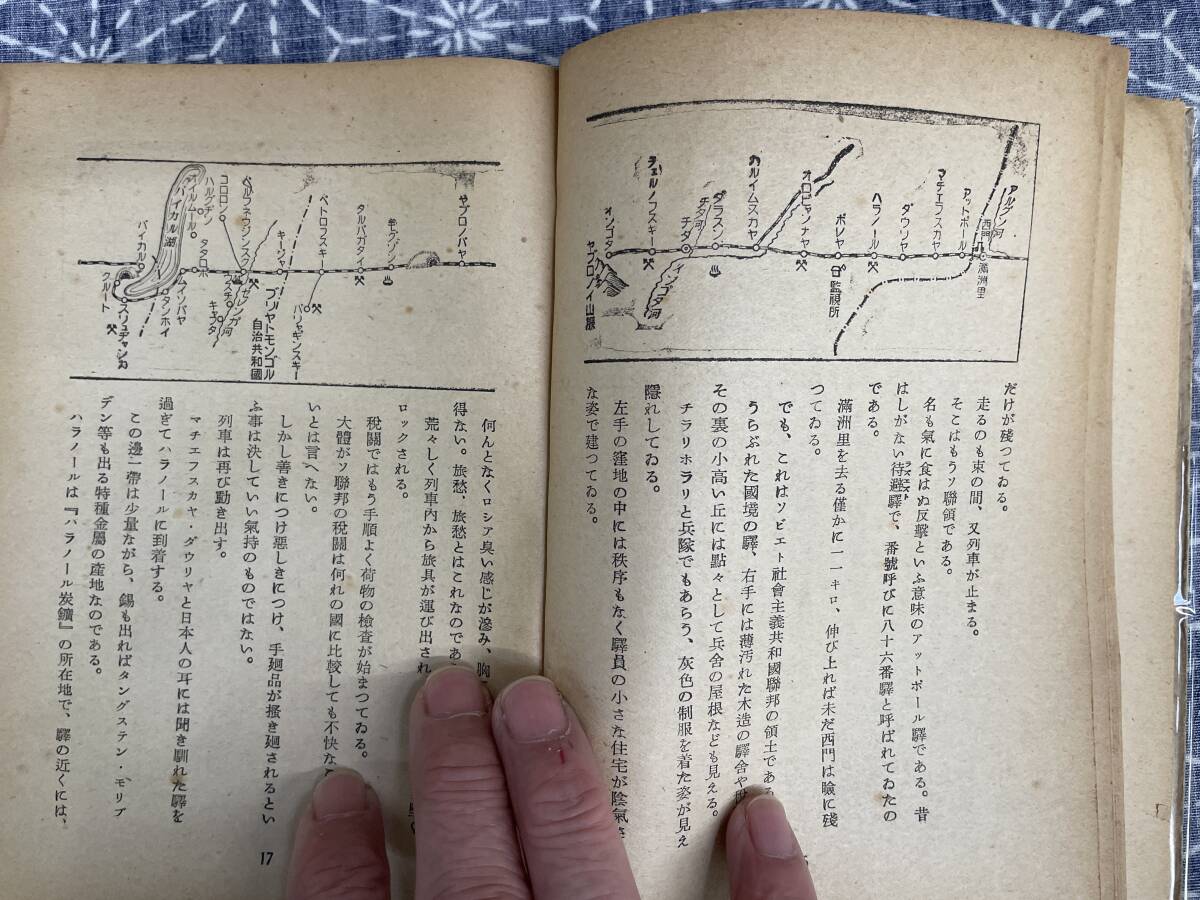 アルグン河
西門
滿洲里
アットポール
マチエフスカヤ
ダウリヤ
ハラノール
監視所
ボルヂヤ
オロビャンナヤ
カルイムスカヤ
ダラスン
チタ河
チタ
インゴタ河
チェルノフスキー
オンゴタ
ヤブロノイ山脈
だけが殘つてゐる。
走るのも束の間、又列車が止まる。
そこはもうソ聯領である。
名も氣に食はぬ反擊といふ意味のアットポール驛である。昔
はしがない待避驛で、番號呼びに八十六番驛と呼ばれてゐたの
である。
滿洲里を去る僅かに一一キロ、伸び上れば未だ西門は瞼に殘
つてゐる。
でも、これはソビエト社會主義共和國聯邦の領土である
うらぶれた國境の驛、右手には薄汚れた木造の驛舍や
その裏の小高い丘には點々として兵舍の屋根なども見える。
チラリホラリと兵隊でもあらう、灰色の制服を着た姿が見え
隱れしてゐる。
左手の窪地の中には秩序もなく驛員の小さな住宅が陰氣さ
な姿で建つてゐる。
ヤブロノバヤ
モグゾン
タルバガタイ
ペトロフスキー
バリャギンスキー
キージャ
ブリヤトモンゴル
自治共和國
ベルフネウジンスク
セレンガ河
コロロン
ウスチ
キャフタ
ハルグヂン
タタロボ
バイカル湖
ムイソバヤ
タンホイ
バイカル
スリュヂャンカ
クルート
何んとなくロシア臭い感じが滲み、胸
得ない。旅愁、旅愁とはこれなのであ
荒々しく列車內から旅具が運び出され
ロックされる。
稅關ではもう手順よく荷物の檢査が始まつてゐる。
大體がソ聯邦の稅關は何れの國に比較しても不快な
いとは言へない。
しかし善きにつけ惡しきにつけ、手廻品が搔き廻されるとい
ふ事は決していい氣持のものではない。
列車は再び動き出す。
マチエフスカヤ・ダウリヤと日本人の耳には聞き馴れた驛を
過ぎてハラノールに到着する。
この邊一帶は少量ながら、錫も出ればタングステン・モリブ
デン等も出る特種金屬の產地なのである。
ハラノールは『ハラノール炭鑛』の所在地で、驛の近くには、
17